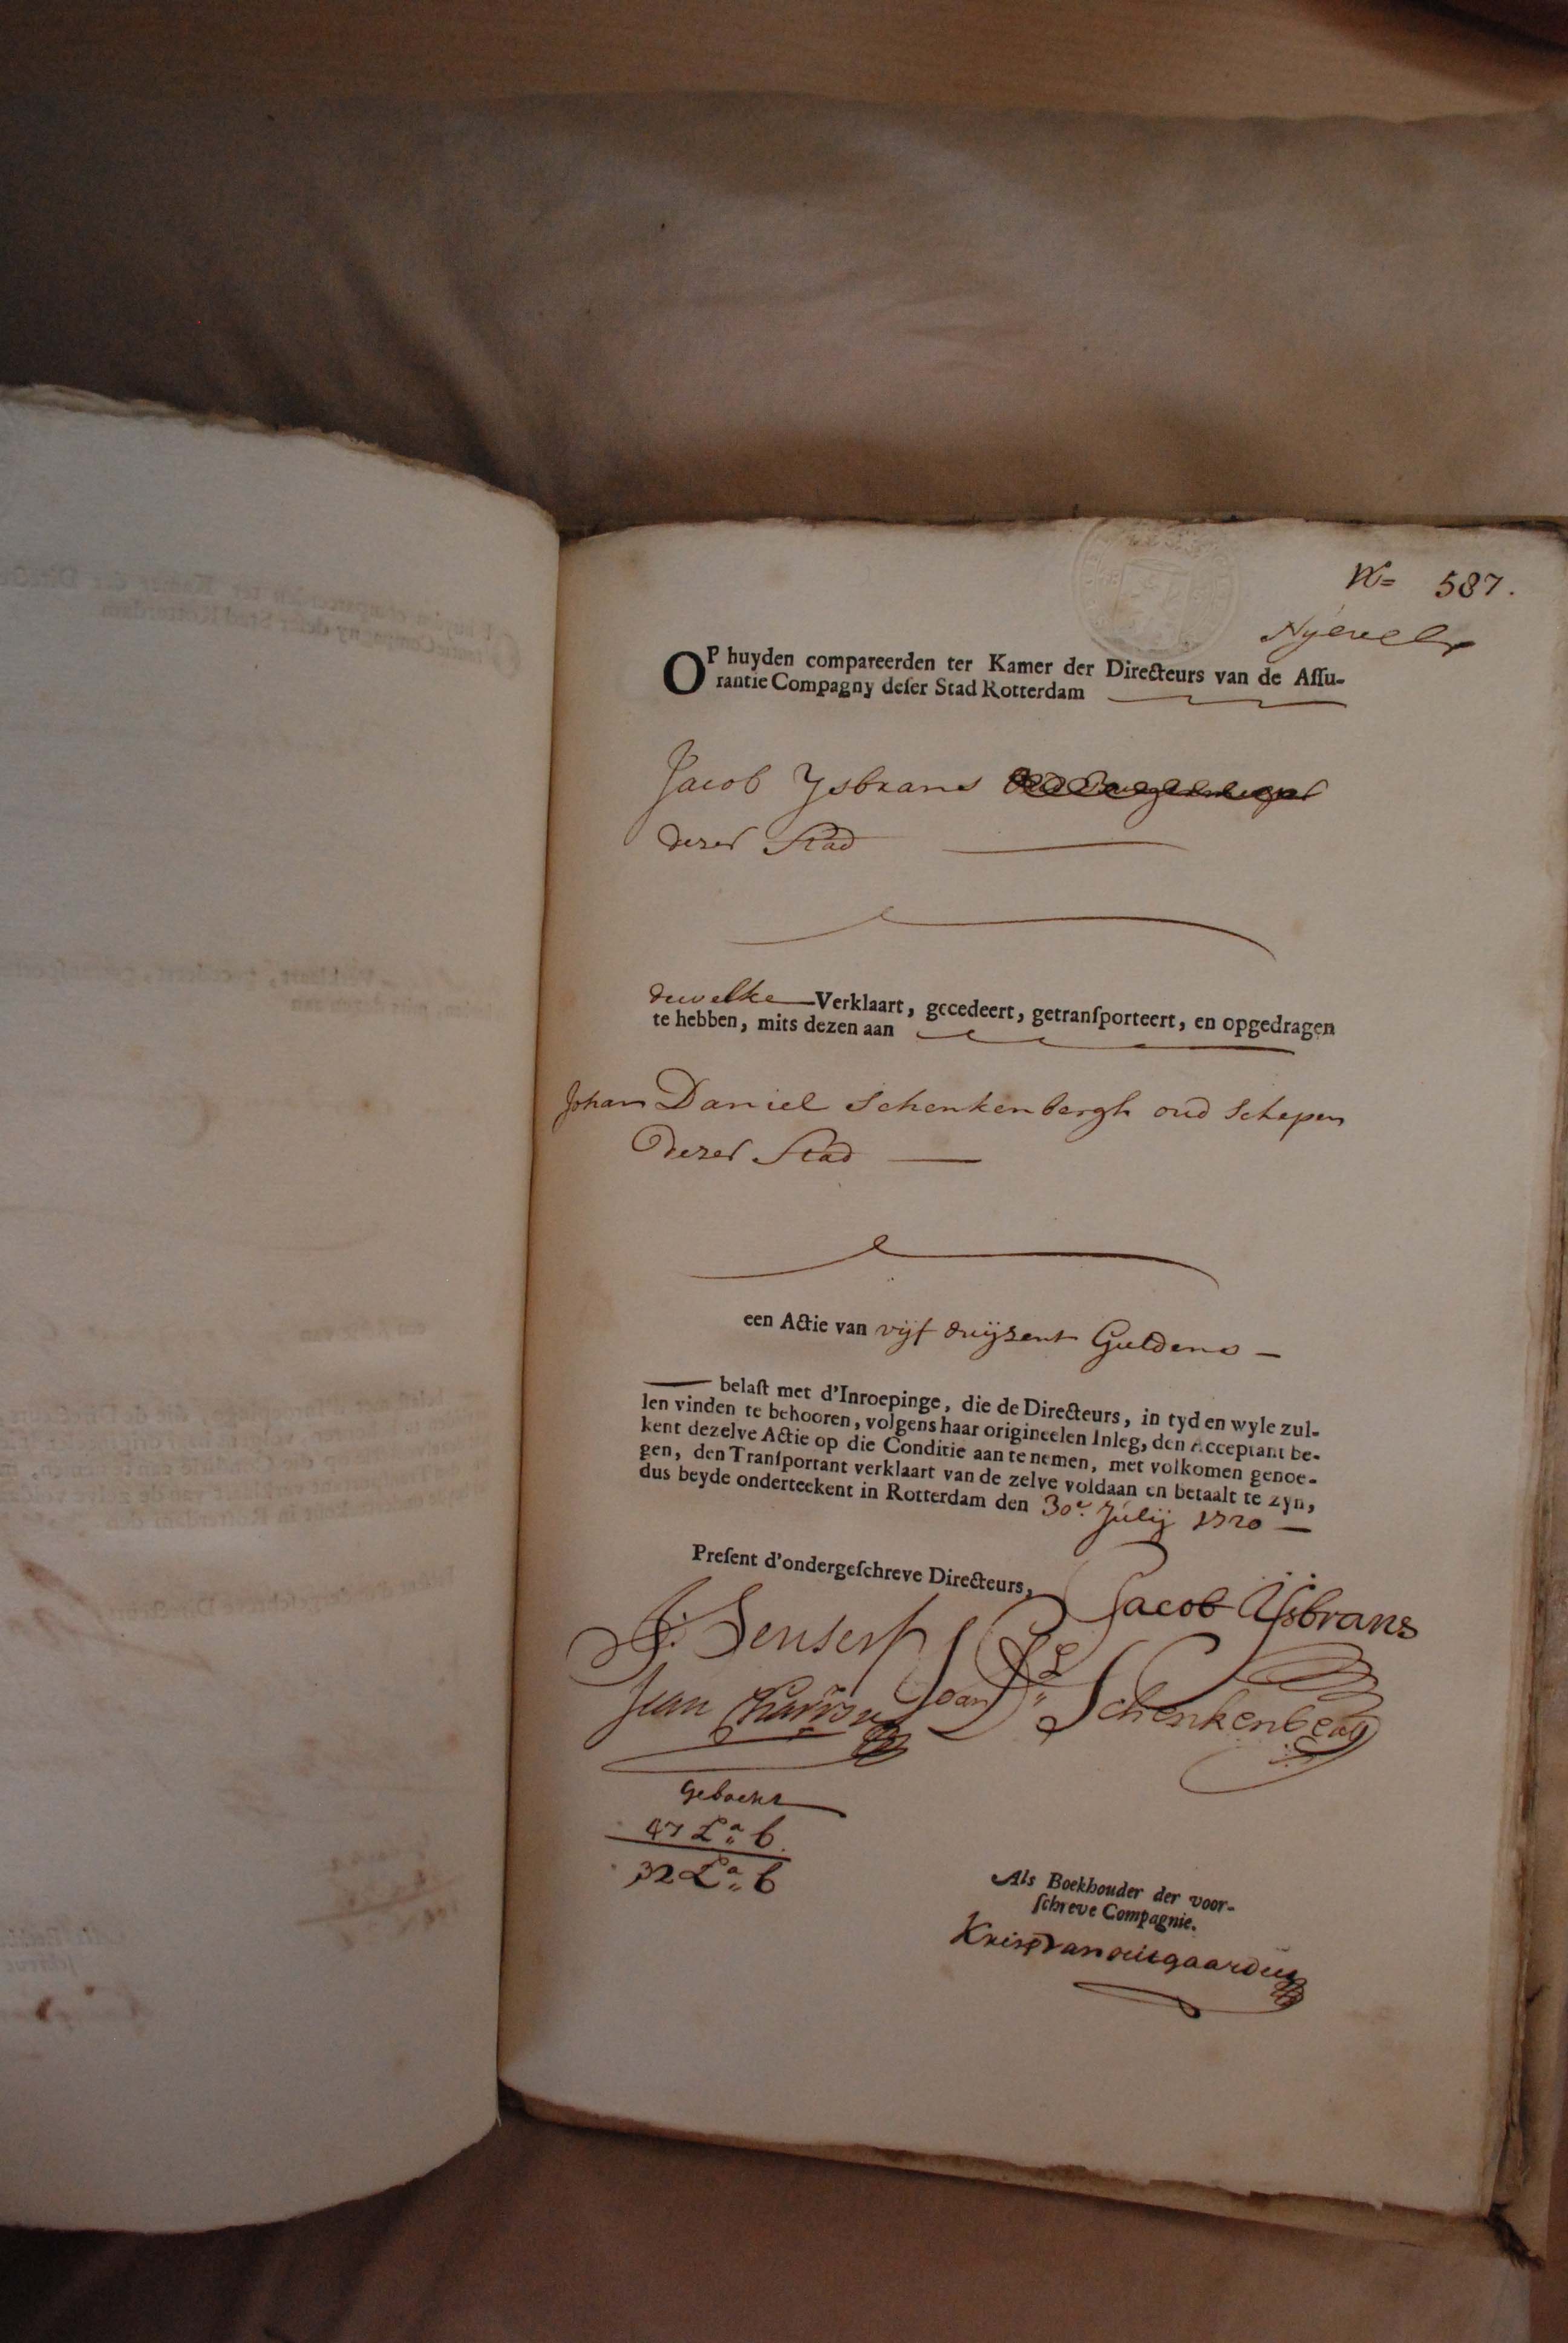 N= 587.
Nyevelt
OP huyden compareerden ter Kamer der Directeurs van de Aſſu-
rantie Compagny deſer Stad Rotterdam
Jacob Ysbrans
dezer Stad
dewelke Verklaart, gecedeert, getranſporteert, en opgedragen
te hebben, mits dezen aan
Johan Daniel Schenkenbergh oud Schepen
Dezer Stad
een Actie van vijf duijzent Guldens
belaſt met d'Inroepinge, die de Directeurs, in tyd en wyle zul-
len vinden te behooren, volgens haar origineelen Inleg, den Acceptant be-
kent dezelve Actie op die Conditie aan te nemen, met volkomen genoe-
gen, den Tranſportant verklaart van de zelve voldaan en betaalt te zyn,
dus beyde onderteekent in Rotterdam den 30e. Julij 1720
Preſent d'ondergeſchreve Directeurs,
Jacob IJsbrans
J: Senserf
Joan Dl. Schenkenberg
Jean
Geboekt
47 La. b.
32 La. b
Als Boekhouder der voor-
ſchreve Compagnie.